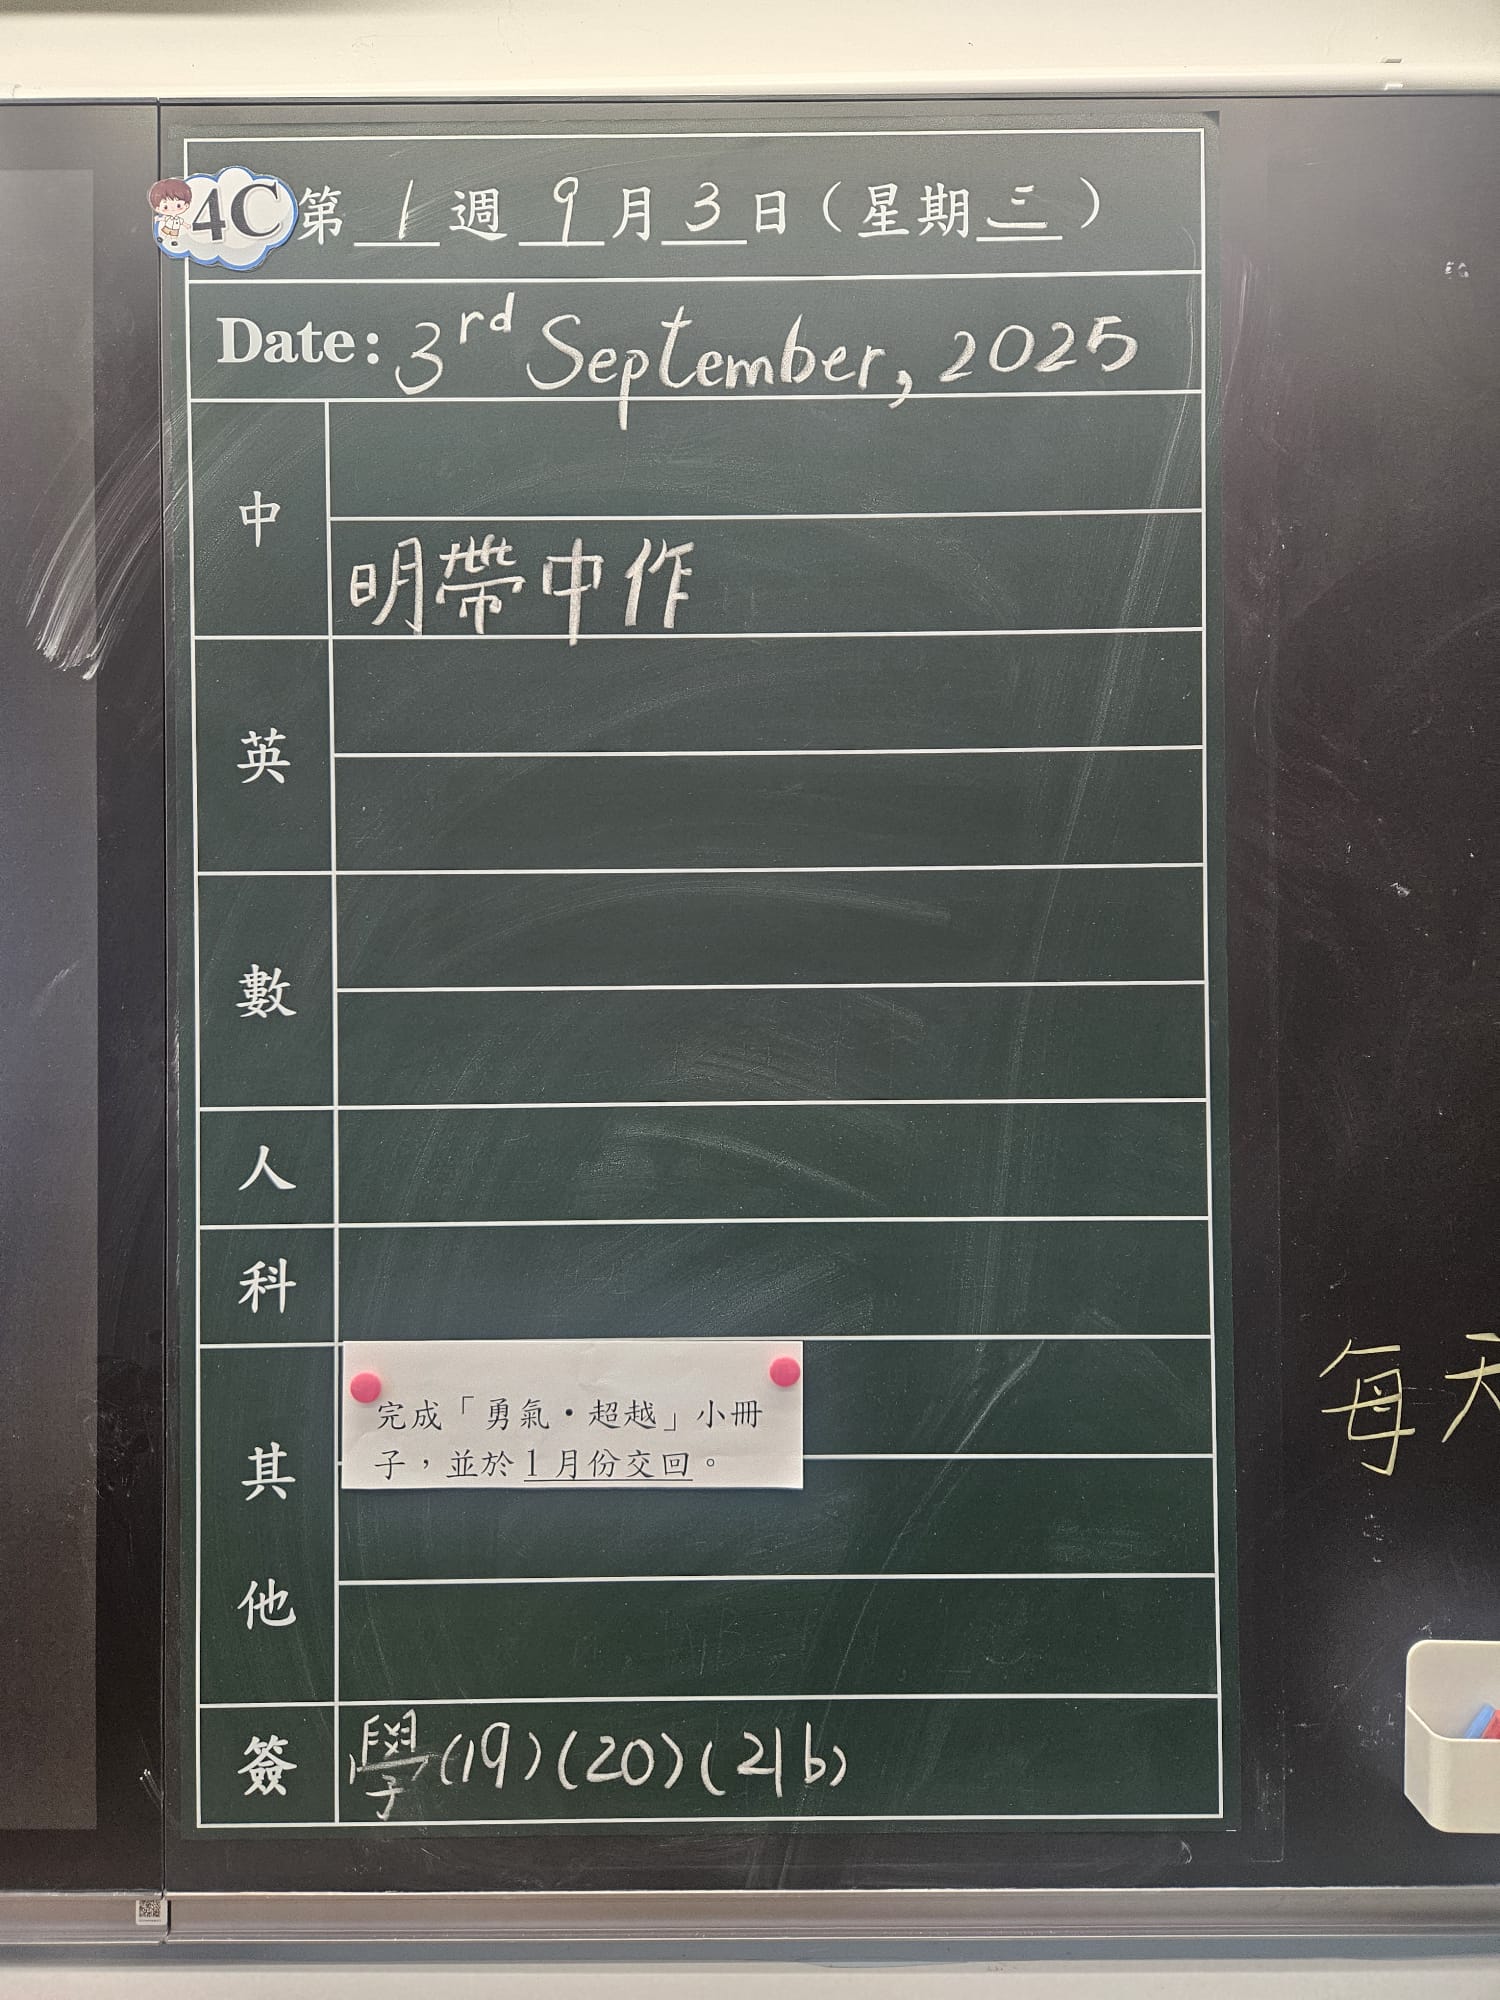 4C 第 1 週 9 月 3 日（星期三）
Date: 3rd September, 2025
中
明帶中作
英
數
人
科
其他
完成「勇氣•超越」小冊
子，並於1月份交回。
簽 學(19)(20)(21b)
每天